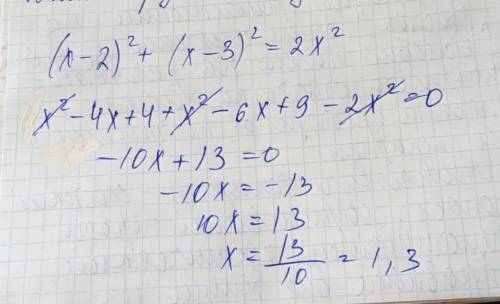 (x-2)² + (x-3)² = 2x²
x² - 4x + 4 + x² - 6x + 9 - 2x² = 0
-10x + 13 = 0
-10x = -13
10x = 13
x = 13/10 = 1,3